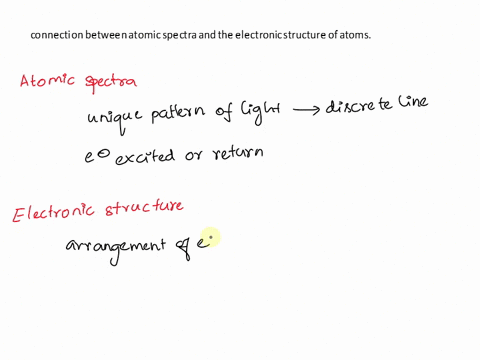 connection between atomic spectra and the electronic structure of atoms.
Atomic spectra
unique pattern of light → discrete line
e⊖ excited or return
Electronic structure
arrangement of e